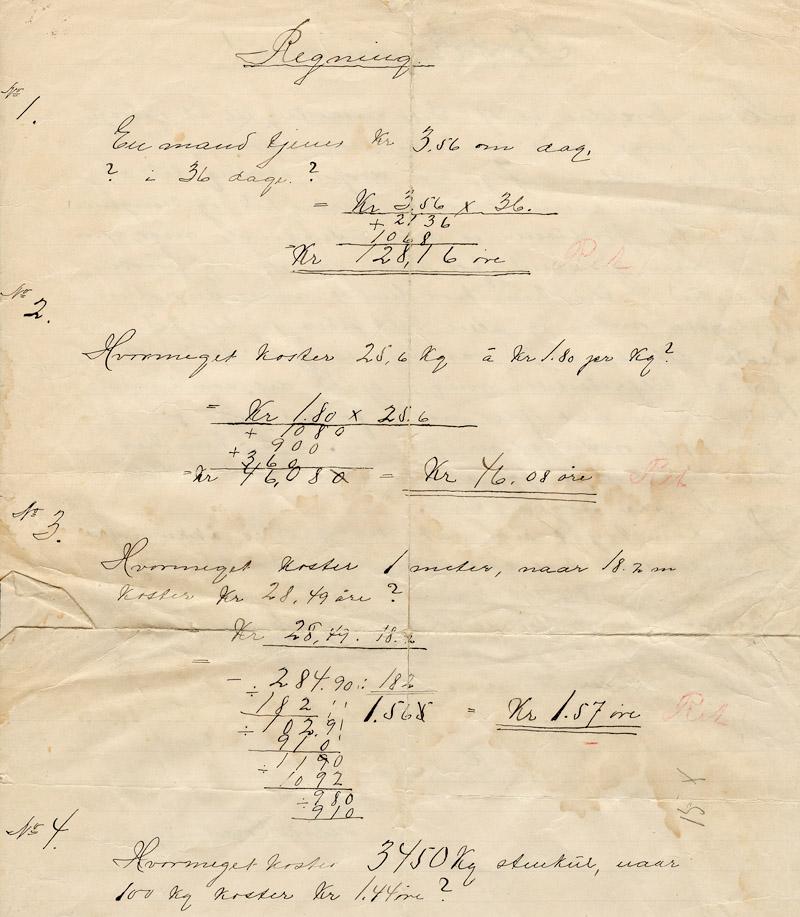 Regning.
No 1.
En mand tjener Kr 3.56 om dag.
? i 36 dage. ?
= Kr 3.56 x 36.
+ 2136
1068
= Kr 128,16 øre Ret
No 2.
Hvormeget koster 25,6 Kg á Kr 1.80 pr Kg?
= Kr 1.80 x 25.6
+ 1080
+ 900
360
= Kr 46,080 = Kr 46.08 øre Ret
No 3.
Hvormeget koster 1 meter, naar 18.2 m
koster Kr 28,49 øre ?
Kr 28,49 : 18.2
=
÷ 284.90 : 182
182 1.565 = Kr 1.57 øre Ret
÷ 102.9
910
÷ 1190
1092
÷ 980
910
15 X
No 4.
Hvormeget koster 3450 Kg stenkul, naar
100 Kg koster Kr 1.44 øre ?